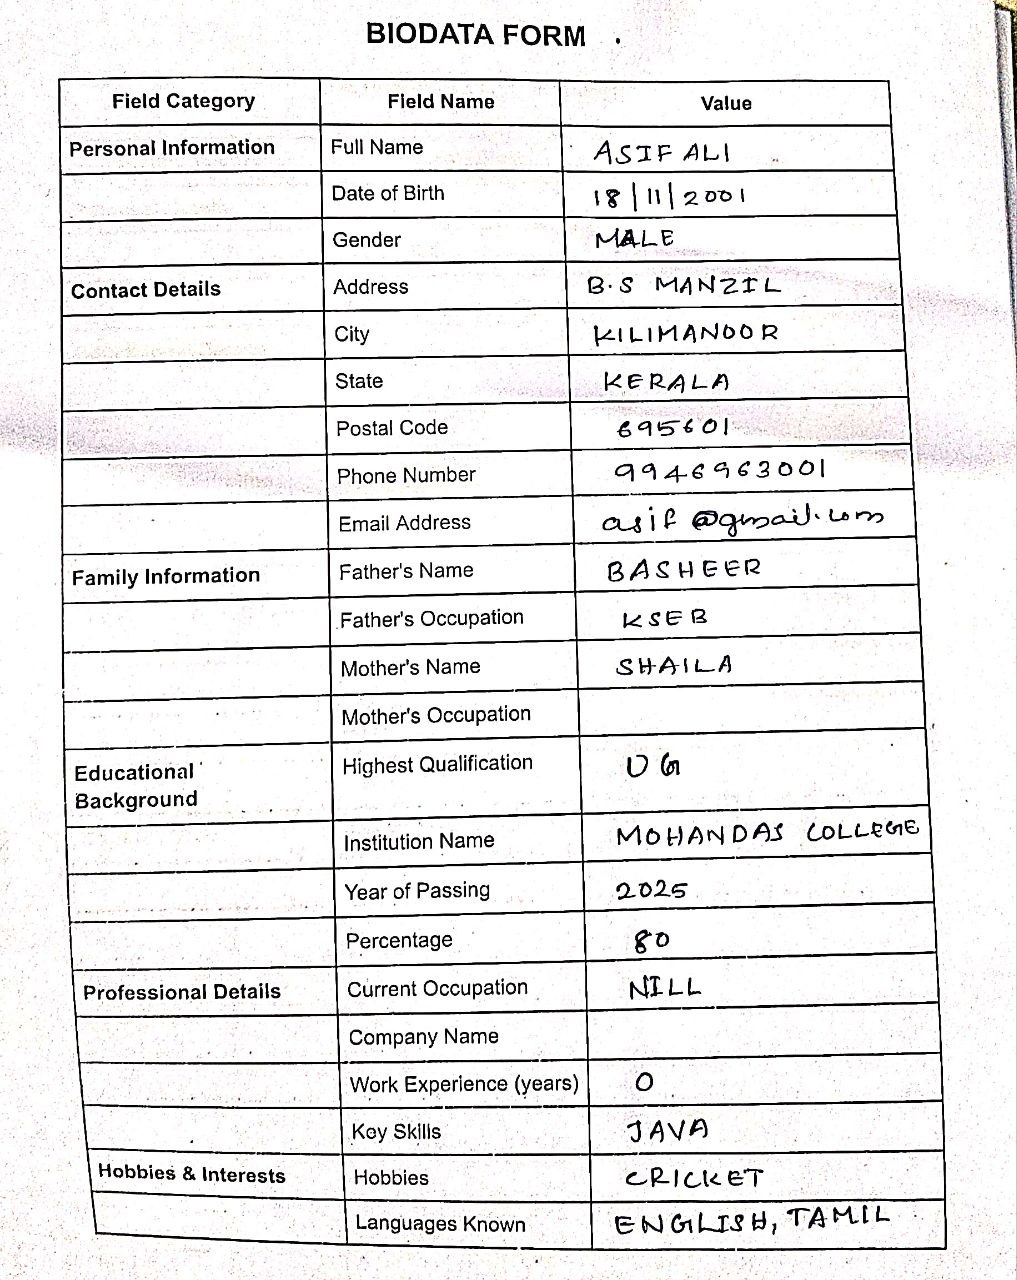 BIODATA FORM
Field Category Field Name Value
Personal Information Full Name ASIF ALI
Date of Birth 18/11/2001
Gender MALE
Contact Details Address B.S MANZIL
City KILIMANOOR
State KERALA
Postal Code 695601
Phone Number 9946963001
Email Address asif @gmail.com
Family Information Father's Name BASHEER
Father's Occupation KSEB
Mother's Name SHAILA
Mother's Occupation
Educational Background Highest Qualification UG
Institution Name MOHANDAS COLLEGE
Year of Passing 2025
Percentage 80
Professional Details Current Occupation NILL
Company Name
Work Experience (years) 0
Key Skills JAVA
Hobbies & Interests Hobbies CRICKET
Languages Known ENGLISH, TAMIL